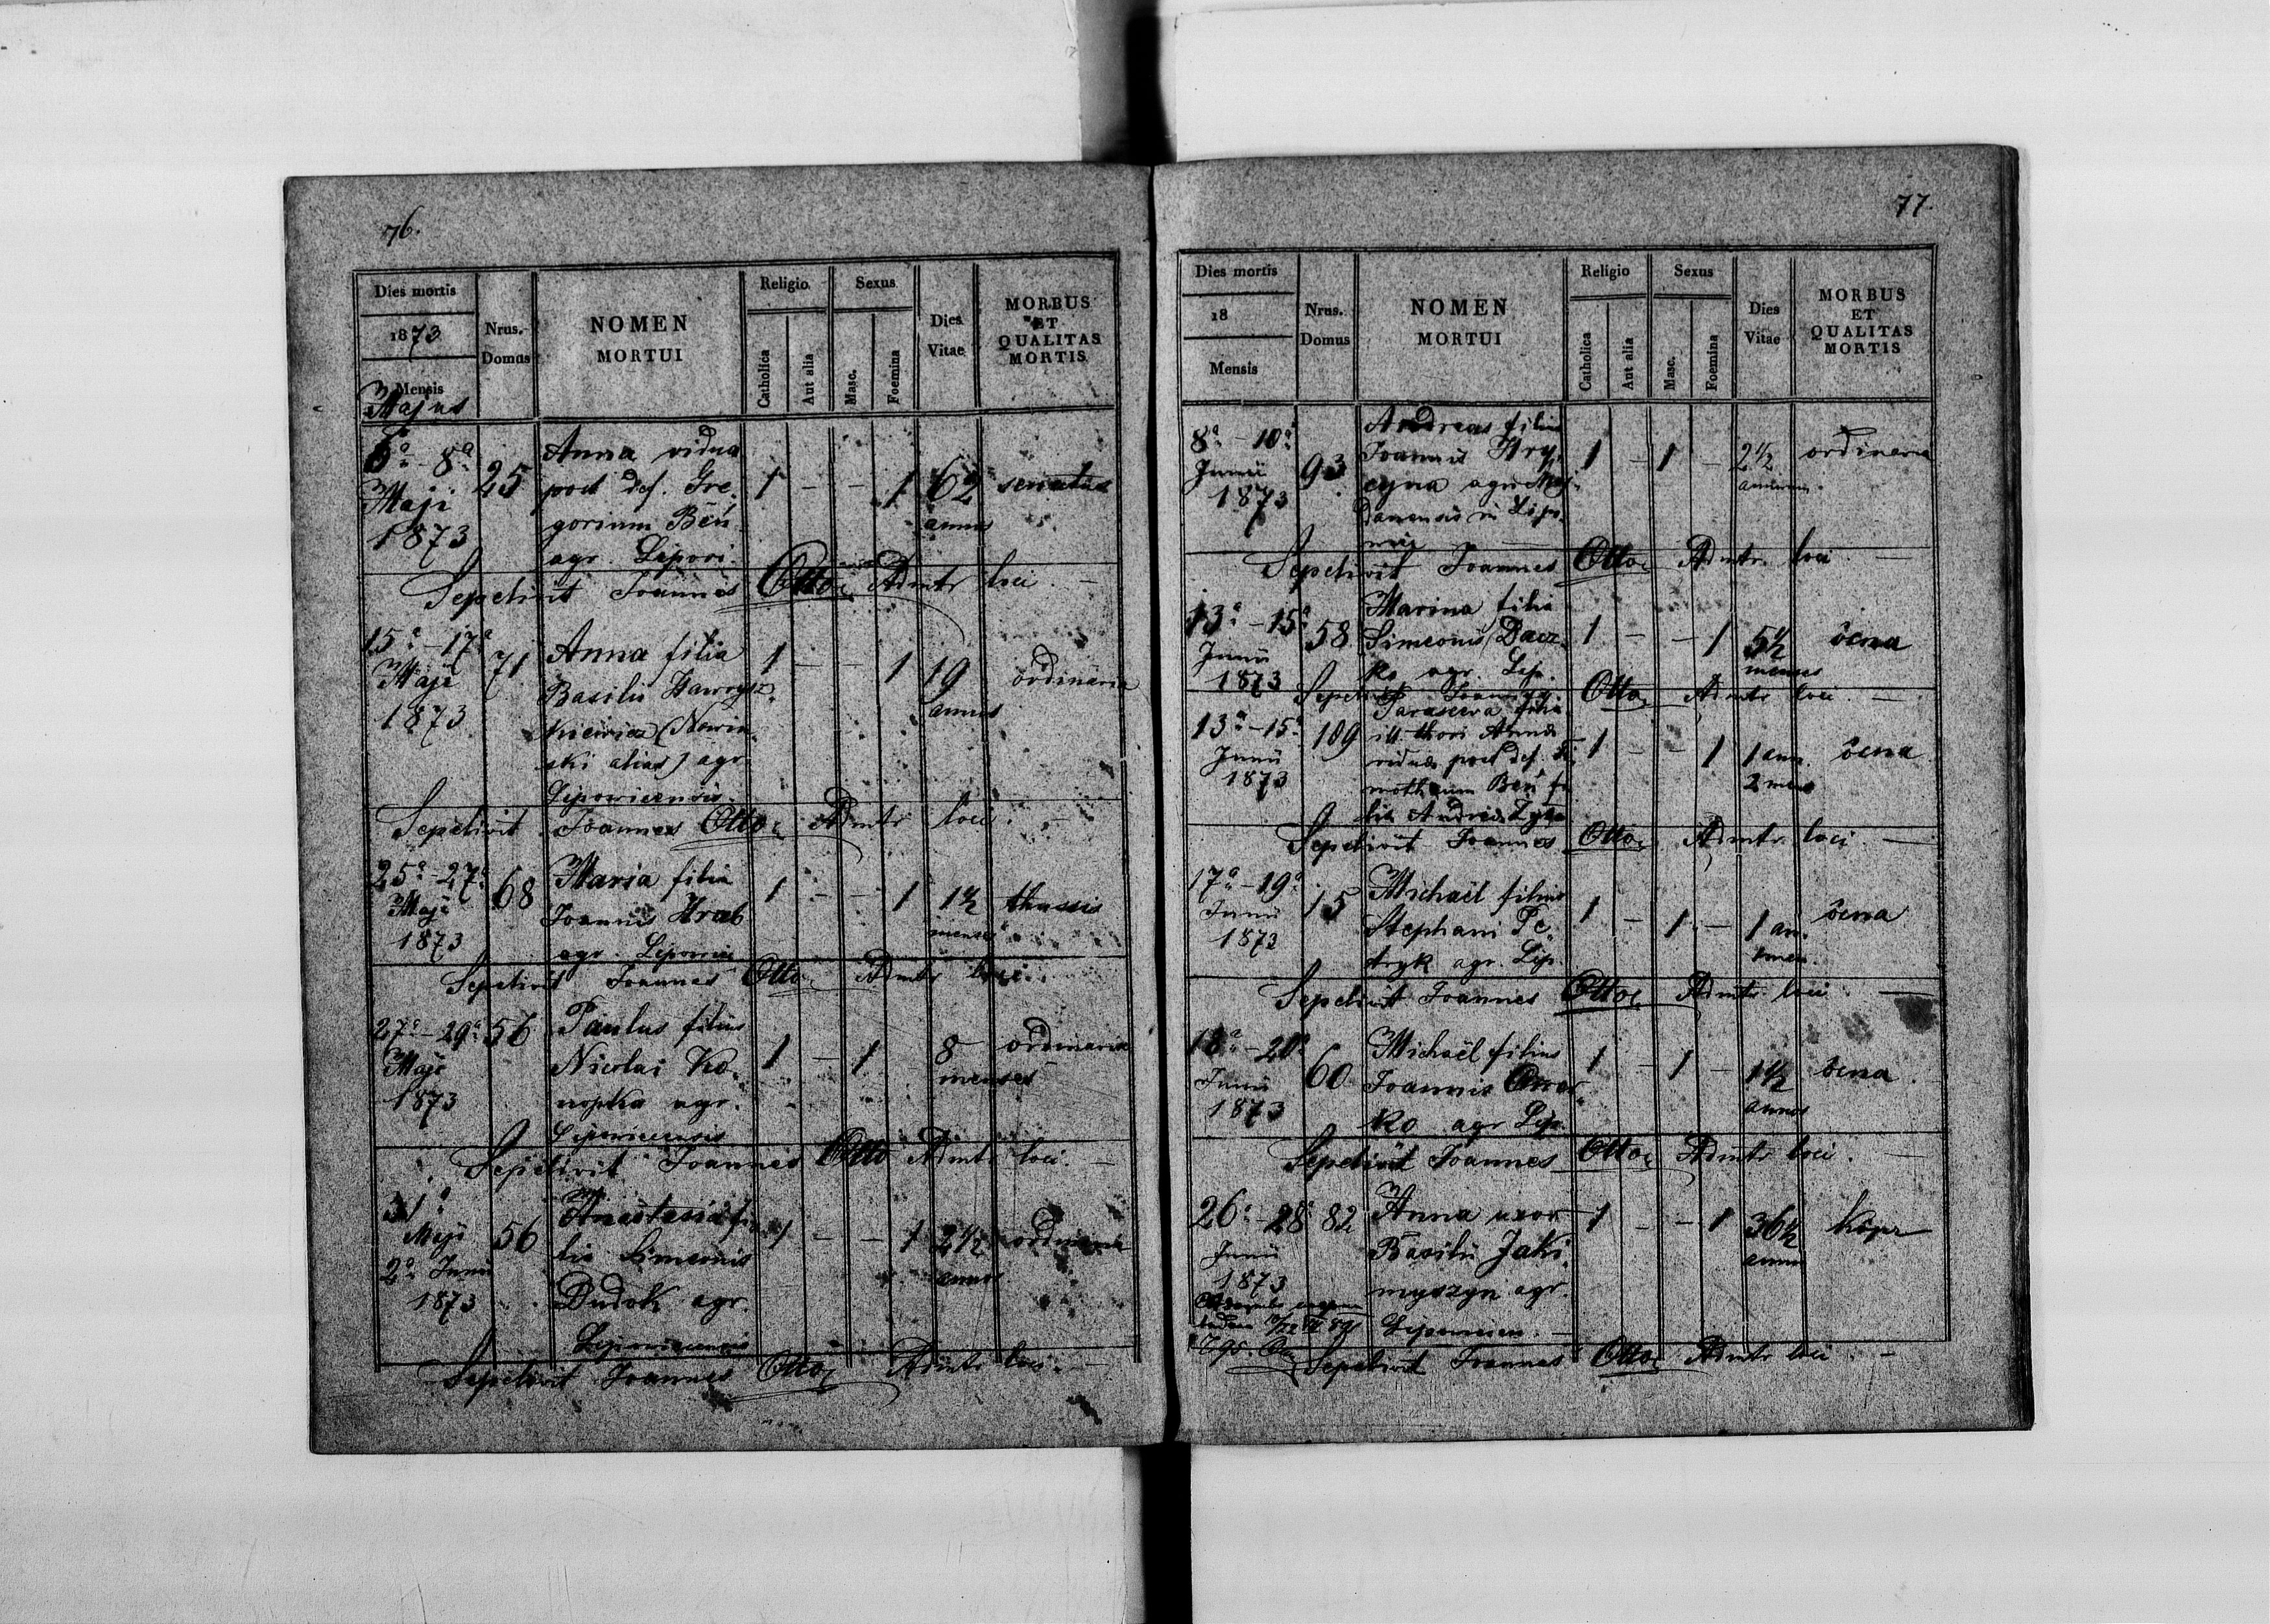 76.
Dies mortis
1873
Mensis
Majus
Nrus. Domus
NOMEN MORTUI
Religio
Catholica
Aut alia
Sexus
Masc.
Foemina
Dies Vitae
MORBUS ET QUALITAS MORTIS
8ª
Maji
1873
25
Anna vidua
post def. Gre
gorium Beń
agr. Lipovi.
1 - - 1
62
annos
Sepelivit Joannes Otto Admtr loci. -
15ª - 17ª
Maji
1873
71
Anna filia
Basilii Hawrysz
kiewicz
alias) agr.
Lipowicensis
1 - - 1
19
annos
ordinaria
Sepelivit Joannes Otto Admtr loci. -
25ª - 27ª
Maji
1873
68
Maria filia
Joannis Hrab
agr. Lipovici
1 - - 1
1½
menses
thussis
Sepelivit Joannes Otto Admtr loci.
27ª - 29ª
Maji
1873
56
Paulus filius
Nicolai Ko
nopka agr.
Lipovicensis
1 - 1
8
menses
ordinaria
Sepelivit Joannes Otto Admtr loci. -
31ª
Maji
2ª Junii
1873
56
Anastasia fi
lia Simeonis
Dudok agr.
Lipovicensis
1 - - 1
2½
annos
ordinaria
Sepelivit Joannes Otto Admtr loci. -
77.
Dies mortis
18
Mensis
Nrus. Domus
NOMEN MORTUI
Religio
Catholica
Aut alia
Sexus
Masc.
Foemina
Dies Vitae
MORBUS ET QUALITAS MORTIS
8ª - 10ª
Junii
1873
93
Andreas filius
Joannis Hry
cyna agr. May
danensis in Lipo
1 - 1 -
2½
ordinaria
Sepelivit Joannes Otto Admtr. loci. -
13ª - 15ª
Junii
1873
58
Marina filia
Simeonis Dacz
ko agr. Lip.
1 - - 1
5½
menses
ôcna
Sepelivit Joannes Otto Admtr loci. -
13ª - 15ª
Junii
1873
109
Parascewa filia
ill. thori Annae
vidua post def. Ti
motheum Beń fi
lia Andreae
1 - - 1
1 ann.
2 mens
ôcna
Sepelivit Joannes Otto Admtr. loci. -
17ª - 19ª
Junii
1873
15
Michaël filius
Stephani Pe
tryk agr. Lip
1 - 1 -
1 an.
ôcna
Sepelivit Joannes Otto Admtr loci. -
18ª - 20ª
Junii
1873
60
Michaël filius
Joannis
ko agr Lip.
1 - 1 -
1½
annos
ôcna.
Sepelivit Joannes Otto Admtr loci. -
26ª - 28ª
Junii
1873
82
Anna uxor
Basilii Jaki
myszyn agr.
Lipovicen. -
1 - - 1
36½
Sepelivit Joannes Otto Admtr loci. -